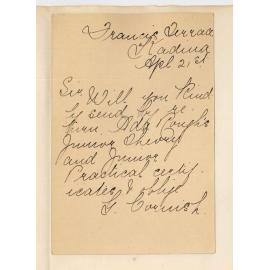 Francis Terrace
Kadina
Apl 21st
Sir Will you kind
ly send by re
turn. Ada Roughs
Junior Theory
and Junior
Practical certif
icates & oblige
G. Cornish.